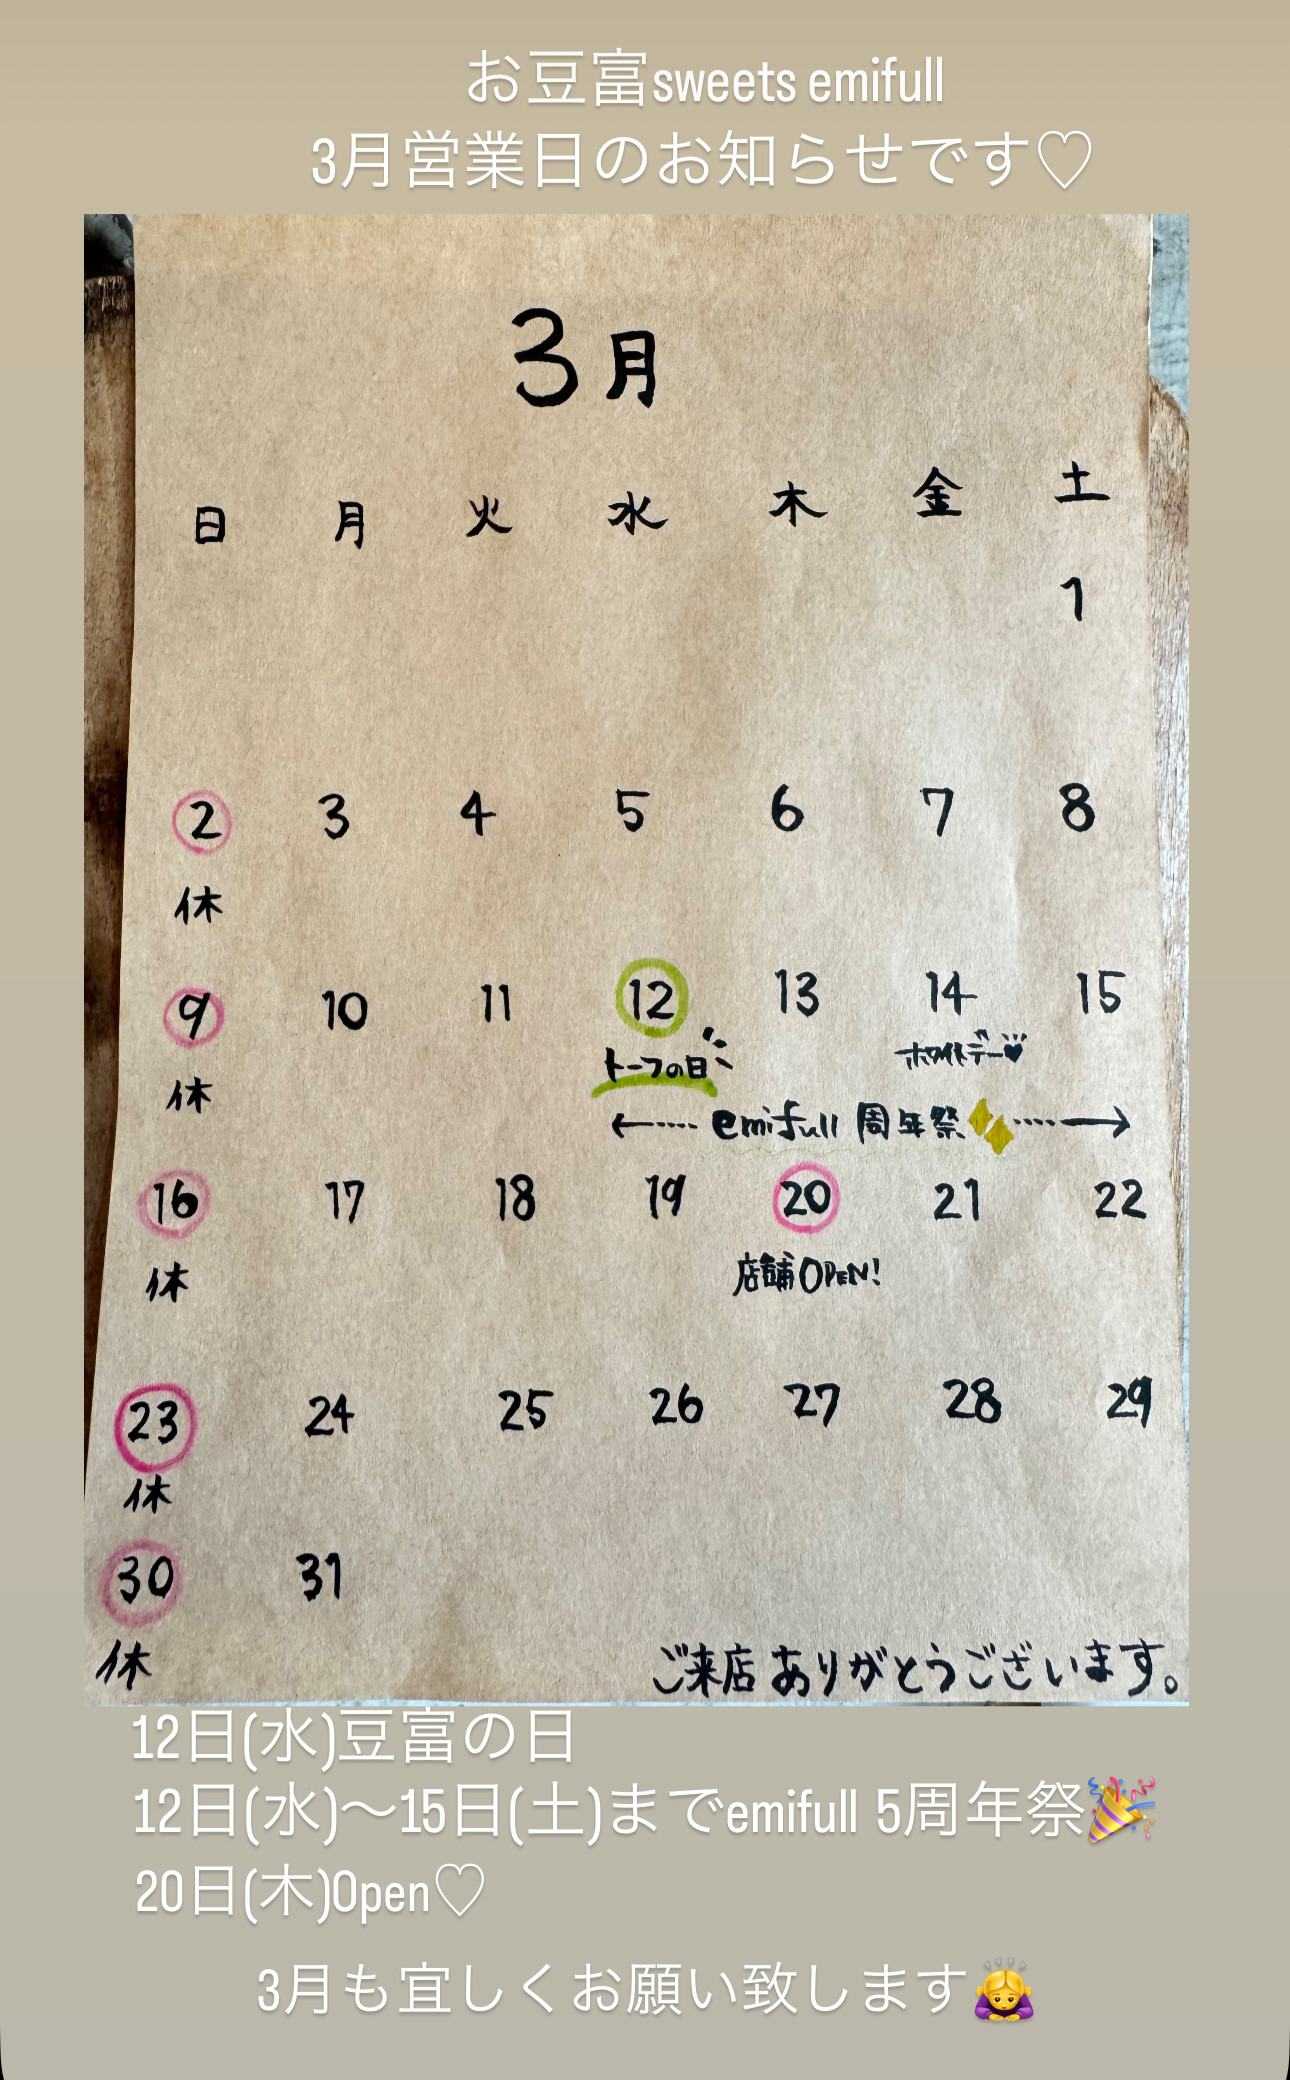 お豆富sweets emifull
3月営業日のお知らせです♡
3月
日 月 火 水 木 金 土
1
2 3 4 5 6 7 8
休
9 10 11 12 13 14 15
休 トーフの日 ホワイトデー♥
←···· emifull 周年祭 ····→
16 17 18 19 20 21 22
休 店舗OPEN!
23 24 25 26 27 28 29
休
30 31
休
ご来店ありがとうございます。
12日(水)豆富の日
12日(水)〜15日(土)までemifull 5周年祭🎉
20日(木)Open♡
3月も宜しくお願い致します🙇‍♀️